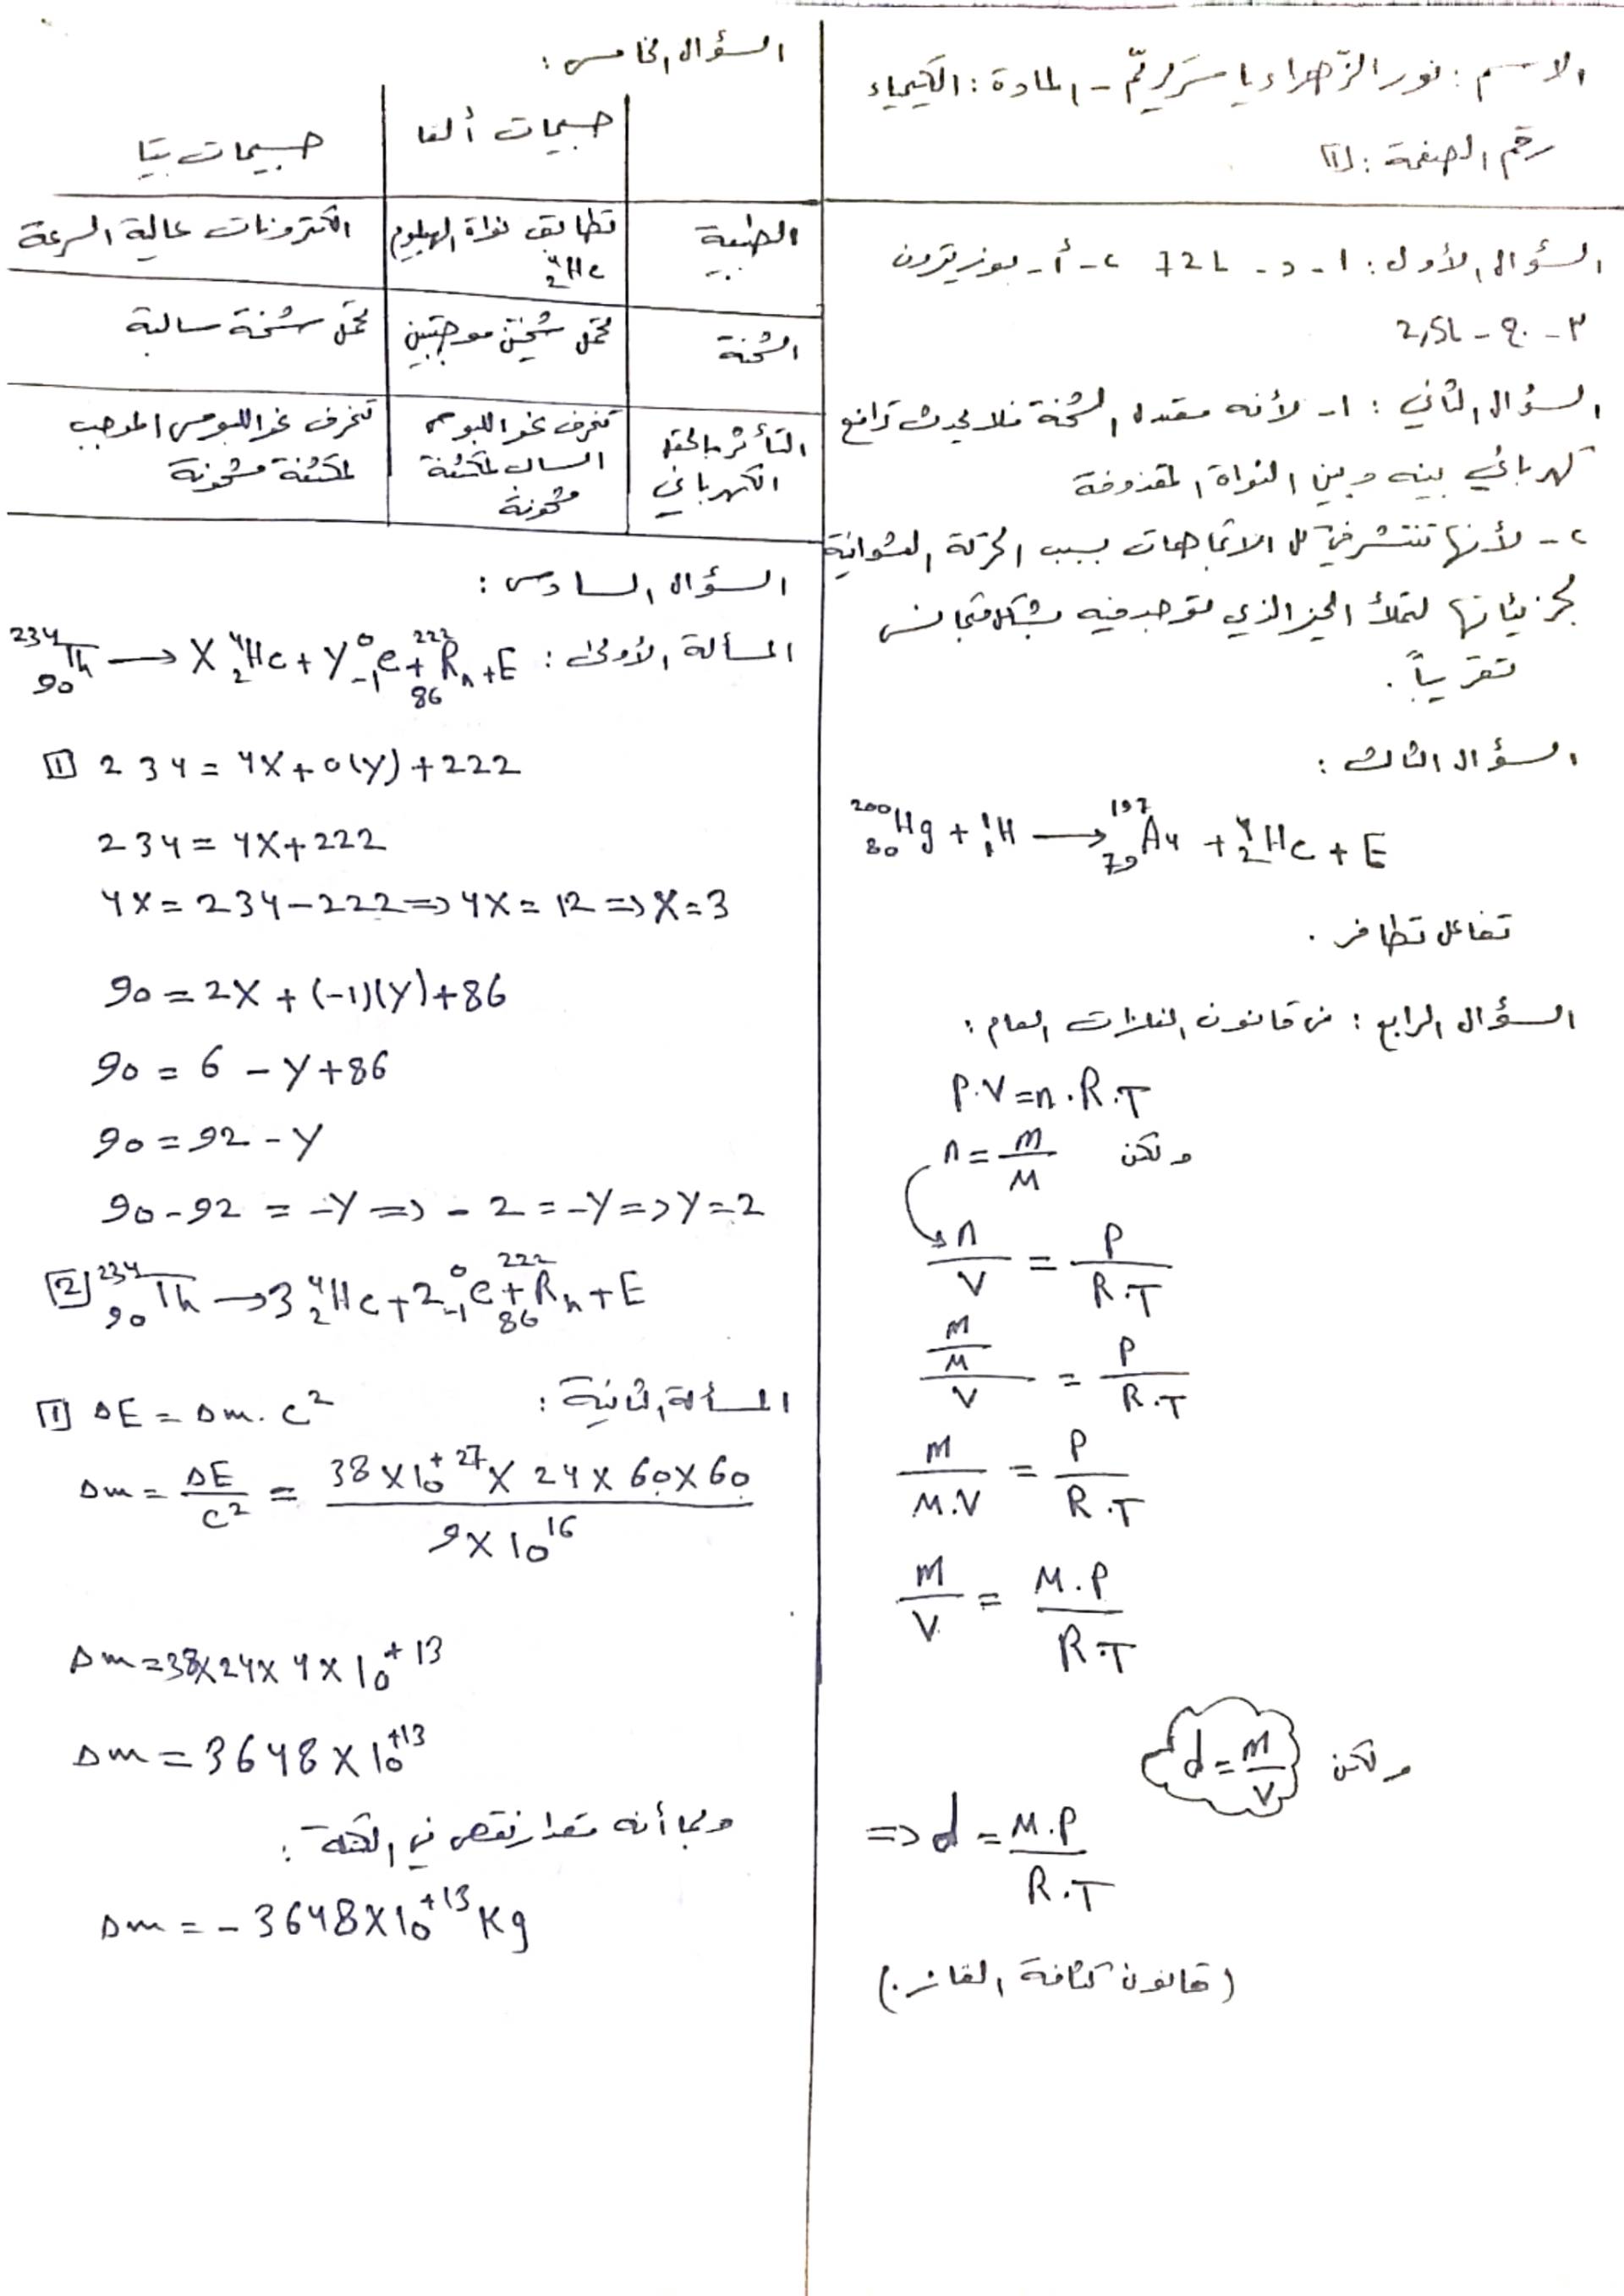 الاسم: نور الزهراء ياسر - المادة: الكيمياء
رقم الصفحة: (1)
السؤال الأول: 1- د- 72L 2- أ- بوزيترون
3- ج- 2,5L
السؤال الثاني: 1- لأنه معتدل الشحنة فلا يحدث تدافع
كهربائي بينه وبين النواة المقذوفة
2- لأنها تنتشر في كل الاتجاهات بسبب الحركة العشوائية
لجزيئاتها لتملأ الحيز الذي توجد فيه بشكل متجانس
تقريباً.
السؤال الثالث:
²⁰⁰₈₀Hg + ¹₁H → ¹⁹⁷₇₉Au + ⁴₂He + E
تفاعل تطافر.
السؤال الرابع: من قانون الغازات العام:
P.V=n.R.T
ولكن n = m/M
n/V = P/R.T
(m/M)/V = P/R.T
m/M.V = P/R.T
m/V = M.P/R.T
ولكن d = m/V
=> d = M.P/R.T
(قانون كثافة الغاز.)
السؤال الخامس:
جسيمات ألفا جسيمات بيتا
الطبيعة تطابق نواة الهيليوم ⁴₂He الكترونات عالية السرعة
الشحنة تحمل شحنتين موجبتين تحمل شحنة سالبة
التأثر بالحقل الكهربائي تنحرف نحو اللبوس السالب لمكثفة مشحونة تنحرف نحو اللبوس الموجب لمكثفة مشحونة
السؤال السادس:
المسألة الأولى: ²³⁴₉₀Th → X ⁴₂He + Y ⁰₋₁e + ²²²₈₆Rn + E
[1] 234 = 4X + 0(Y) + 222
234 = 4X + 222
4X = 234 - 222 => 4X = 12 => X = 3
90 = 2X + (-1)(Y) + 86
90 = 6 - Y + 86
90 = 92 - Y
90 - 92 = -Y => -2 = -Y => Y = 2
[2] ²³⁴₉₀Th → 3 ⁴₂He + 2 ⁰₋₁e + ²²²₈₆Rn + E
المسألة الثانية:
[1] ΔE = Δm.c²
Δm = ΔE/c² = 38×10⁺²⁷×24×60×60 / 9×10¹⁶
Δm = 38×24×4×10⁺¹³
Δm = 3648×10⁺¹³
وبما أنه مقدار نقص في الكتلة:
Δm = -3648×10⁺¹³ Kg